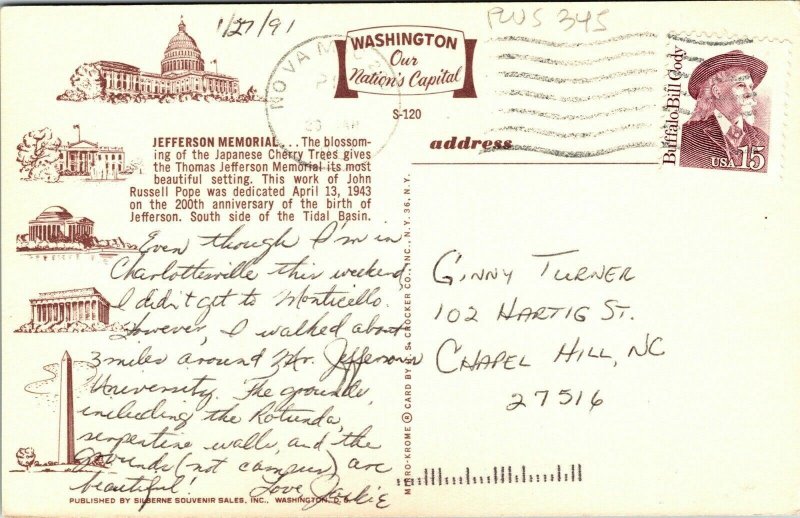 1/27/91
PWS 345
WASHINGTON
Our
Nation's Capital
S-120
NOVA M
Buffalo Bill Cody
USA 15
address
JEFFERSON MEMORIAL...The blossom-
ing of the Japanese Cherry Trees gives
the Thomas Jefferson Memorial its most
beautiful setting. This work of John
Russell Pope was dedicated April 13, 1943
on the 200th anniversary of the birth of
Jefferson. South side of the Tidal Basin.
Even though I'm in
Charlottesville this weekend,
I didn't get to Monticello.
However, I walked about
3 miles around Mr. Jefferson's
University. The grounds,
including the Rotunda,
serpentine walls, and the
grounds (not campus) are
beautiful! Love, Jackie
GINNY TURNER
102 HARTIG ST.
CHAPEL HILL, NC
27516
MIRRO-KROME ® CARD BY H. S. CROCKER CO., INC., N.Y. 36, N.Y.
PUBLISHED BY SILBERNE SOUVENIR SALES, INC., WASHINGTON, D.C.